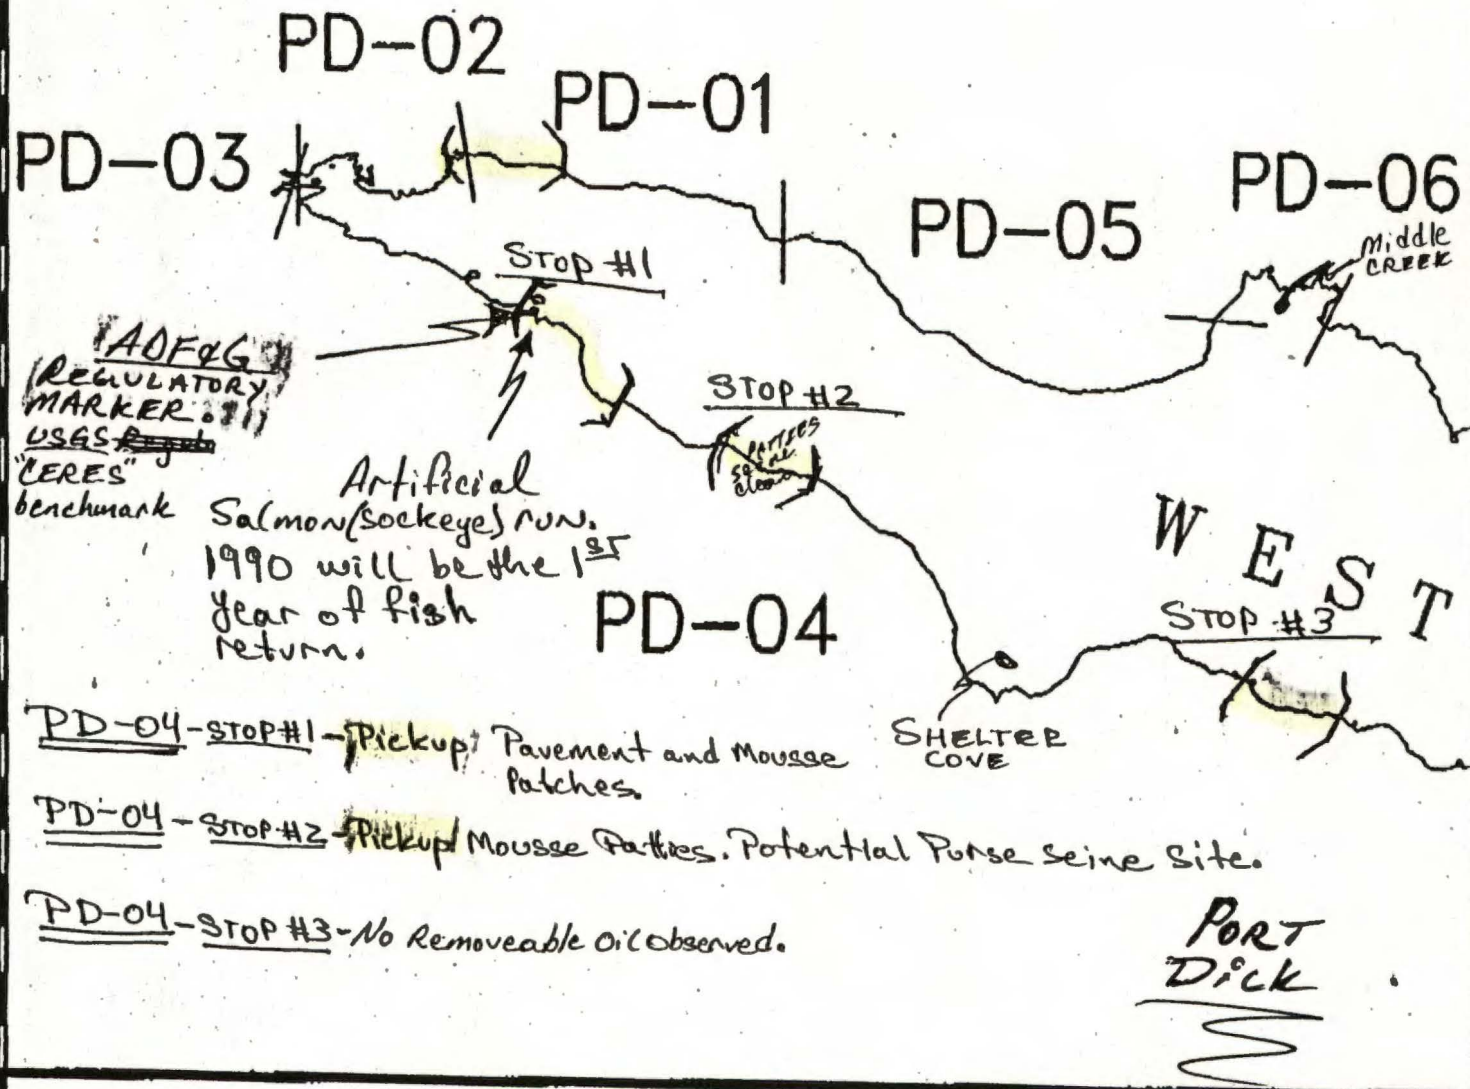 PD-02
PD-01
PD-03
PD-06
PD-05
Middle
CREEK
STOP #1
ADF&G
REGULATORY
MARKER.
USGS
"CERES"
benchmark
STOP #2
PATTIES
Artificial
Salmon (sockeye) run.
1990 will be the 1ST
year of fish
return.
PD-04
WEST
STOP #3
SHELTER
COVE
PD-04-STOP #1-Pickup Pavement and Mousse
Patches.
PD-04-STOP #2-Pickup Mousse Patties. Potential Purse seine Site.
PD-04-STOP #3-No Removeable Oil Observed.
PORT
DICK